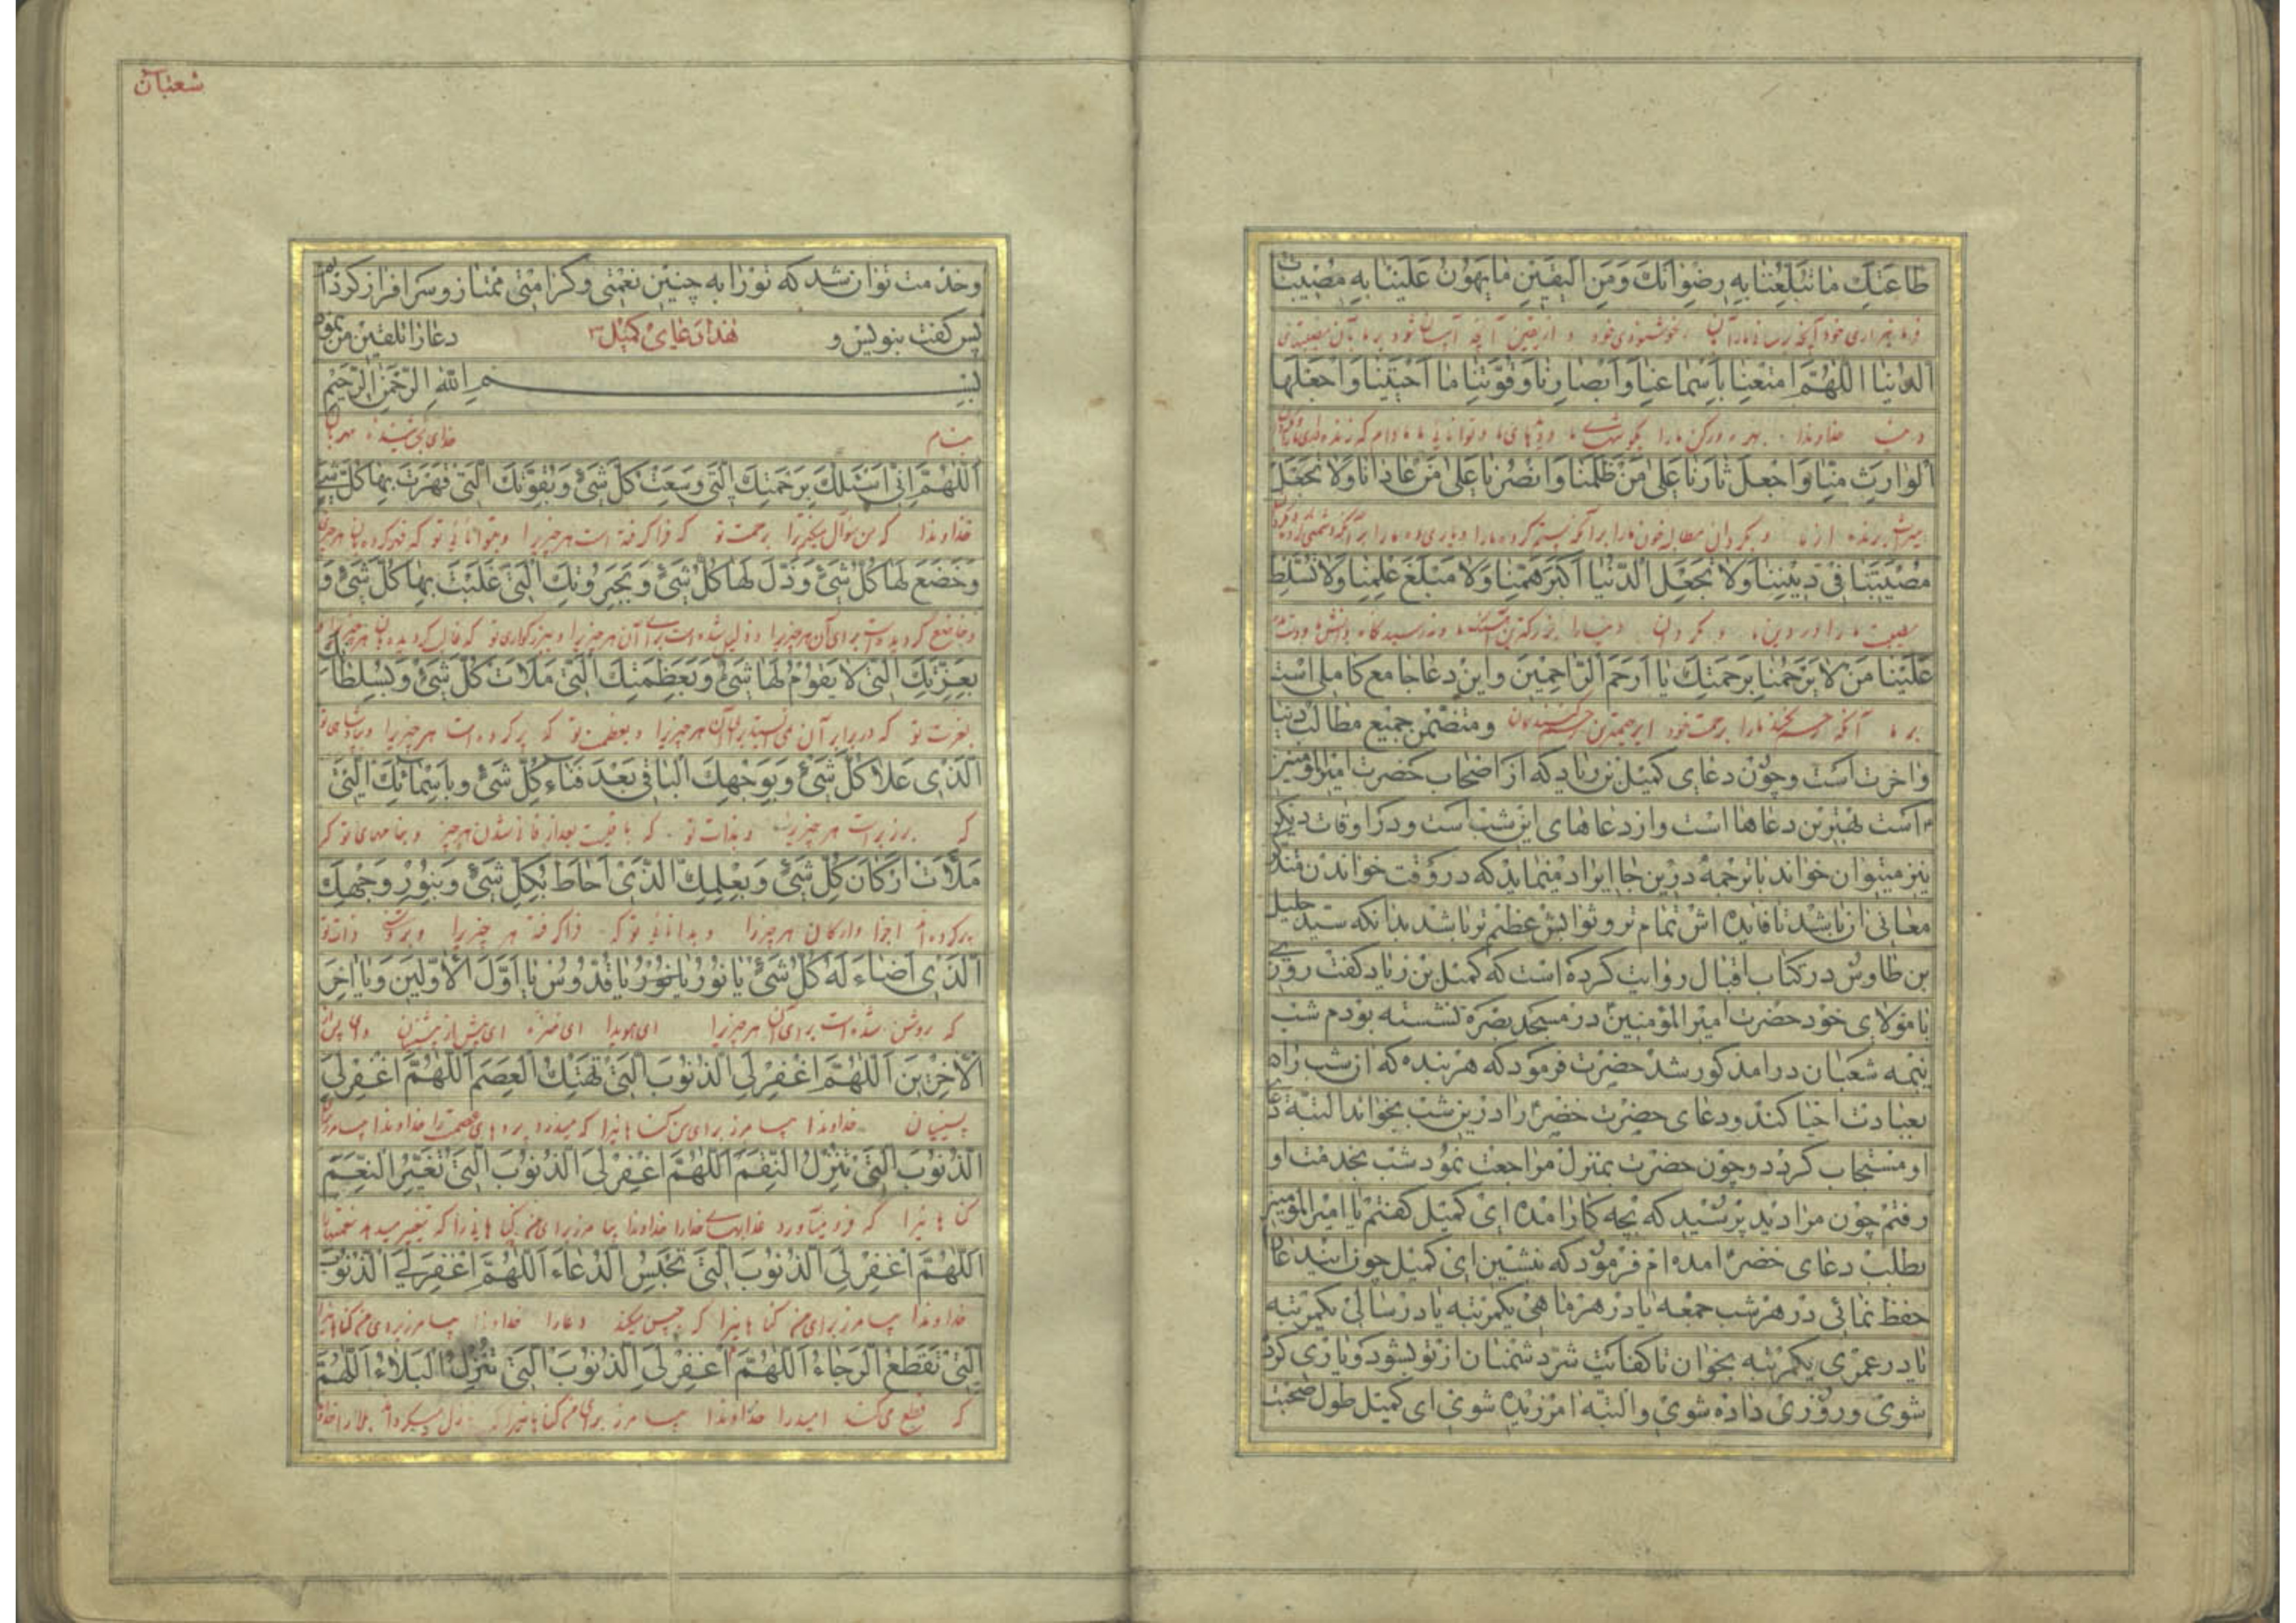 طاعتك ما تبلغنا به رضوانك ومن اليقين ما يهون علينا به مصيبات
فرمانبرداری خود آنچه برساند ما را بآن بخوشنودی خود و از یقین آنچه آسان شود بر ما بآن مصیبتهای
الدنيا اللهم امتعنا باسماعنا وابصارنا وقوتنا ما احييتنا واجعلها
خداوندا بهره‌ور کن ما را بگوشهای ما و دیدهای ما و توانایی ما مادام که زنده
الوارث منا واجعل ثارنا على من ظلمنا وانصرنا على من عادانا ولا تجعل
میراث برنده از ما و بگردان مطالبه خون ما را بر آنکه ستم کرده ما را و یاری ده ما را بر آنکه دشمنی
مصيبتنا في ديننا ولا تجعل الدنيا اكبر همنا ولا مبلغ علمنا ولا تسلط
مصیبت ما را در دین ما و مگردان دنیا را بزرکترین
علينا من لا يرحمنا برحمتك يا ارحم الراحمين واین دعا جامع کاملی است
بر ما آنکه رحم نکند ما را برحمت خود ای رحیمترین رحم کنندکان ومتضمن جمیع مطالب دنیا
واخرت است وچون دعای کمیل بن زیاد که از اصحاب حضرت امیر المؤمنین
است بهترین دعاها است واز دعاهای این شب است ودر اوقات دیکر
نیز میتوان خواند با ترجمه درین جا ایراد مینماید که در وقت خواندن متذکر
معانی ان باشد تا فایده اش تمام تر وثوابش عظیم تر باشد بدانکه سید جلیل
بن طاوس در کتاب اقبال روایت کرده است که کمیل بن زیاد کفت روزی
با مولای خود حضرت امیر المؤمنین در مسجد بصره نشسته بودم شب
نیمه شعبان در امد مذکور شد حضرت فرمود که هر بنده که ان شب را
بعبادت احیا کند ودعای حضرت خضر را درین شب بخواند البته دعای
او مستجاب کردد وچون حضرت بمنزل مراجعت نمود شب بخدمت او
رفتم چون مرا دید پرسید که بچه کار امده ای کمیل کفتم یا امیر المؤمنین
بطلب دعای خضر امده ام فرمود که بنشین ای کمیل چون این دعا را
حفظ نمائی در هر شب جمعه یا در هر ماهی یکمرتبه یا در سالی یکمرتبه
یا در عمری یکمرتبه بخوان تا کفایت شر دشمنان از تو بشود ویاری کرده
شوی وروزی داده شوی والبته امرزیده شوی ای کمیل طول صحبت
شعبان
وخدمت تو ان شد که تو را به چنین نعمتی وکرامتی ممتاز وسرافراز کرده‌ام
پس کفت بنویس و هذا دعای کمیل دعا را تلقین من نمود
بسم الله الرحمن الرحيم
بنام خدای بخشنده مهربان
اللهم اني اسئلك برحمتك التي وسعت كل شئ وبقوتك التي قهرت بها كل شئ
خداوندا که من سؤال میکنم ترا برحمت تو که فراکرفته است هر چیز را و بتوانایی تو که قهر کرده بآن هر چیز
وخضع لها كل شئ وذل لها كل شئ وبجبروتك التي غلبت بها كل شئ و
و خاضع کردیده است برای آن هر چیز را و ذلیل شده است برای آن هر چیز را و ببزرکواری تو که غالب کردیده بآن هر چیز را و
بعزتك التي لا يقوم لها شئ وبعظمتك التي ملات كل شئ وبسلطانك
بعزت تو که در برابر آن نمی‌ایستد هر چیز را و بعظمت تو که پر کرده است هر چیز را و بپادشاهی تو
الذي علا كل شئ وبوجهك الباقي بعد فناء كل شئ وباسمائك التي
که برتر است هر چیز را و بذات تو که باقیست بعد از فانی شدن هر چیز و بنامهای تو که
ملات اركان كل شئ وبعلمك الذي احاط بكل شئ وبنور وجهك
پر کرده‌اند اجزا و ارکان هر چیز را و بدانایی تو که فراکرفته هر چیز را و بروشنی ذات تو
الذي اضاء له كل شئ يا نور يا نور يا قدوس يا اول الاولين ويا اخر
که روشن شده است برای آن هر چیز را ای هویدا ای منزه ای پیش از پیشینیان
الاخرين اللهم اغفر لي الذنوب التي تهتك العصم اللهم اغفر لي
پسینیان خداوندا بیامرز برای من کناهانیرا که میدرد پردهای عصمت را خداوندا بیامرز
الذنوب التي تنزل النقم اللهم اغفر لي الذنوب التي تغير النعم
کناهانیرا که فرو میآورد عذابهای خدا را خداوندا بیامرز برای من کناهانیرا که تغییر میدهد نعمتها
اللهم اغفر لي الذنوب التي تحبس الدعاء اللهم اغفر لي الذنوب
خداوندا بیامرز برای من کناهانیرا که حبس میکند دعا را خداوندا بیامرز برای من کناهانیرا
التي تقطع الرجاء اللهم اغفر لي الذنوب التي تنزل البلاء اللهم
که قطع میکند امید را خداوندا بیامرز برای من کناهانیرا که نازل میکرداند بلا را خداوندا